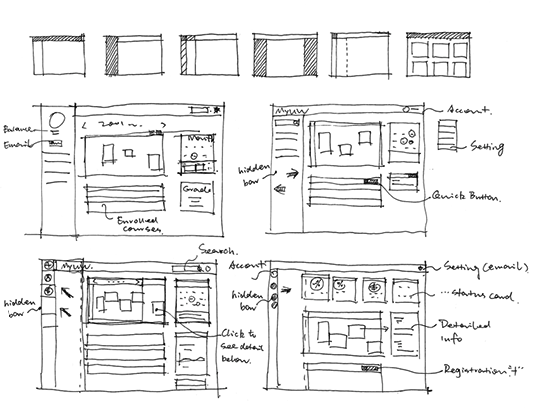 Email
Month
Grade
Enrolled
courses.
MyUW
Account.
Setting
hidden
bar
Quick Button.
Search.
MyUW.
hidden
bar
Click to
see detail
below.
Account
hidden
bar
Setting (email)
...status card.
Detailed
info
Registration "+"